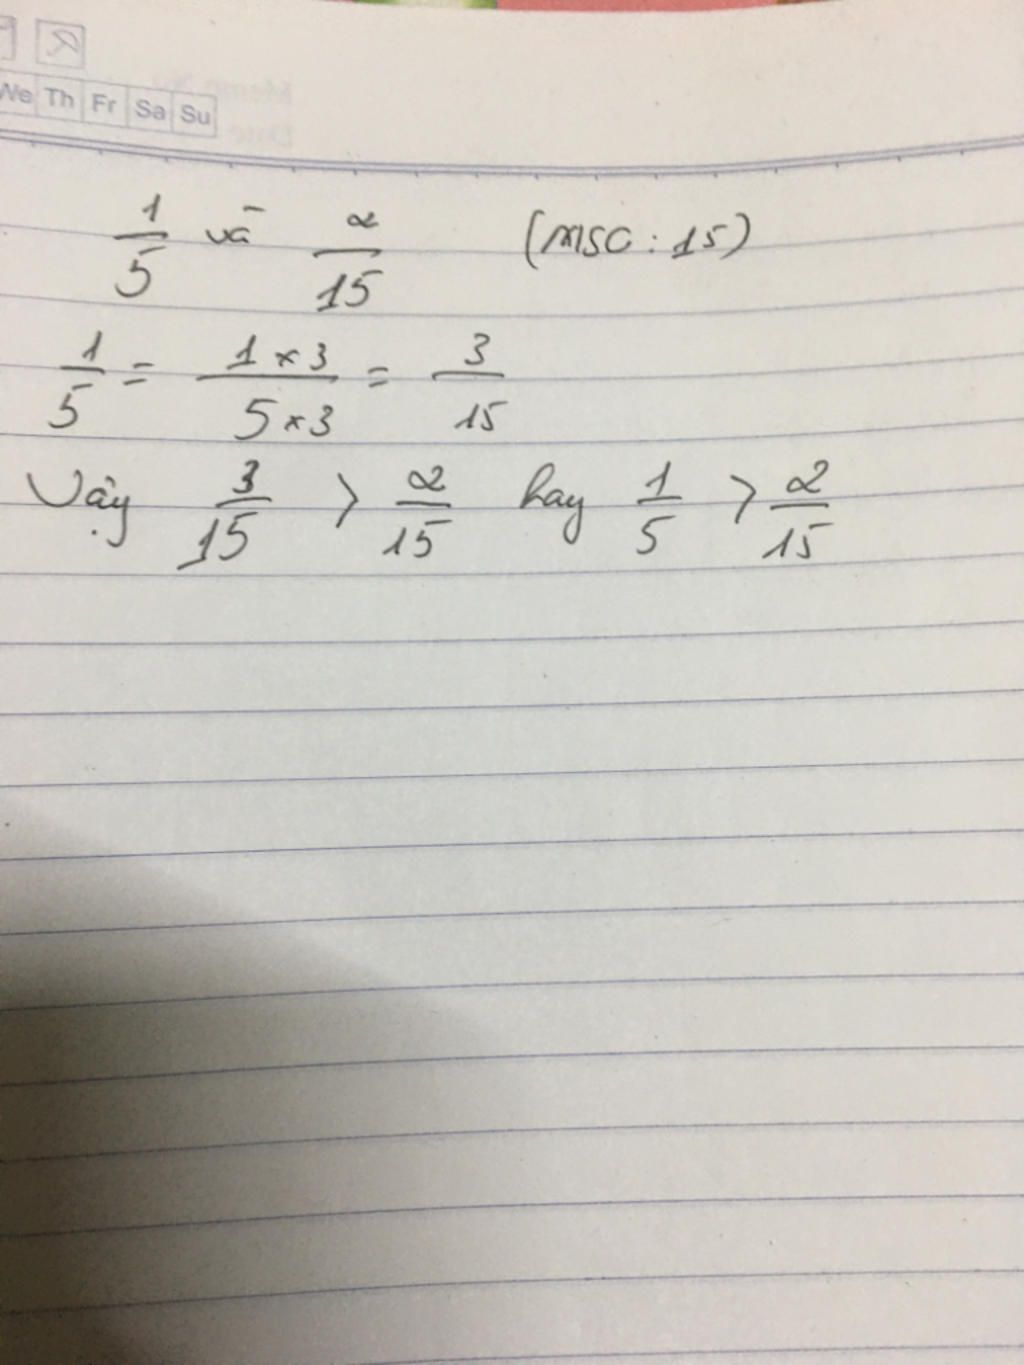 We Th Fr Sa Su
1/5 và 2/15 (MSC: 15)
1/5 = 1 × 3 / 5 × 3 = 3/15
Vậy 3/15 > 2/15 hay 1/5 > 2/15